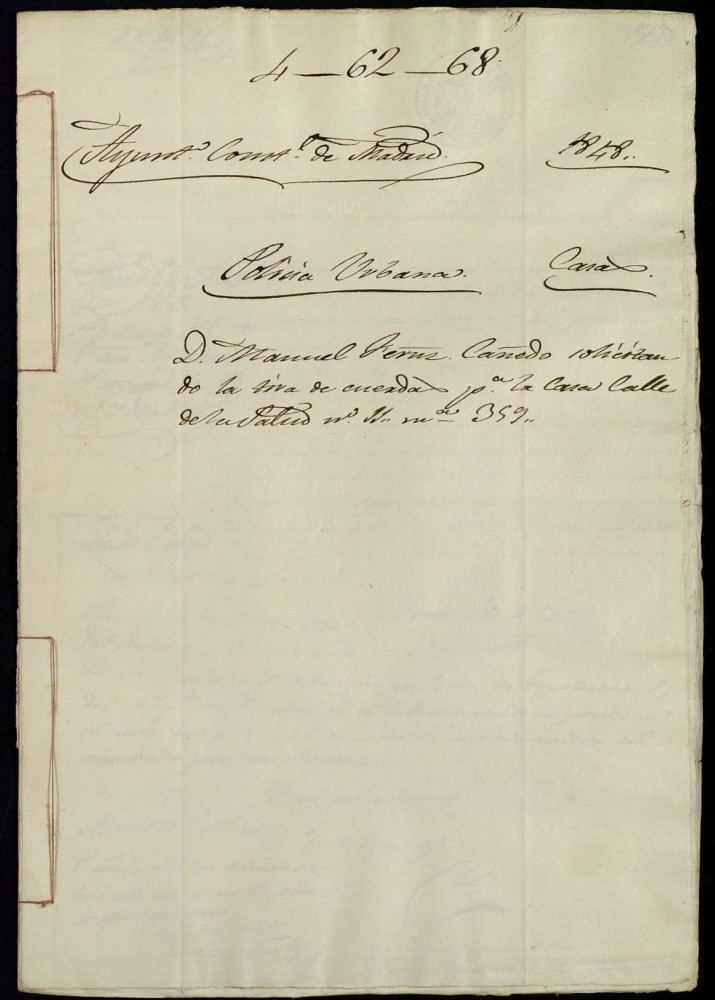 4-62-68
Ayunt.º Const.l de Madrid.
1848..
Policia Urbana.
Casas.
D. Manuel Fernz. Cañedo solicitan
do la tira de cuerdas p.a la Casa Calle
de la Salud nº. 11.. m.a 359..